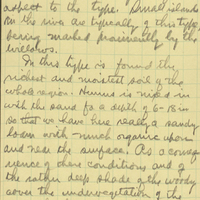 aspect to the type. Small islands
in the river are typically of this type,
being marked prominently by the
willows.
In this type is found the
richest and moistest soil of the
whole region. Humus is mixed in
with the sand to a depth of 6-18 in
so that we have here really a sandy
loam with much organic upon
and near the surface. As a conseq-
uence of these conditions and of
the rather deep shade of the woody
cover the undervegetation of the